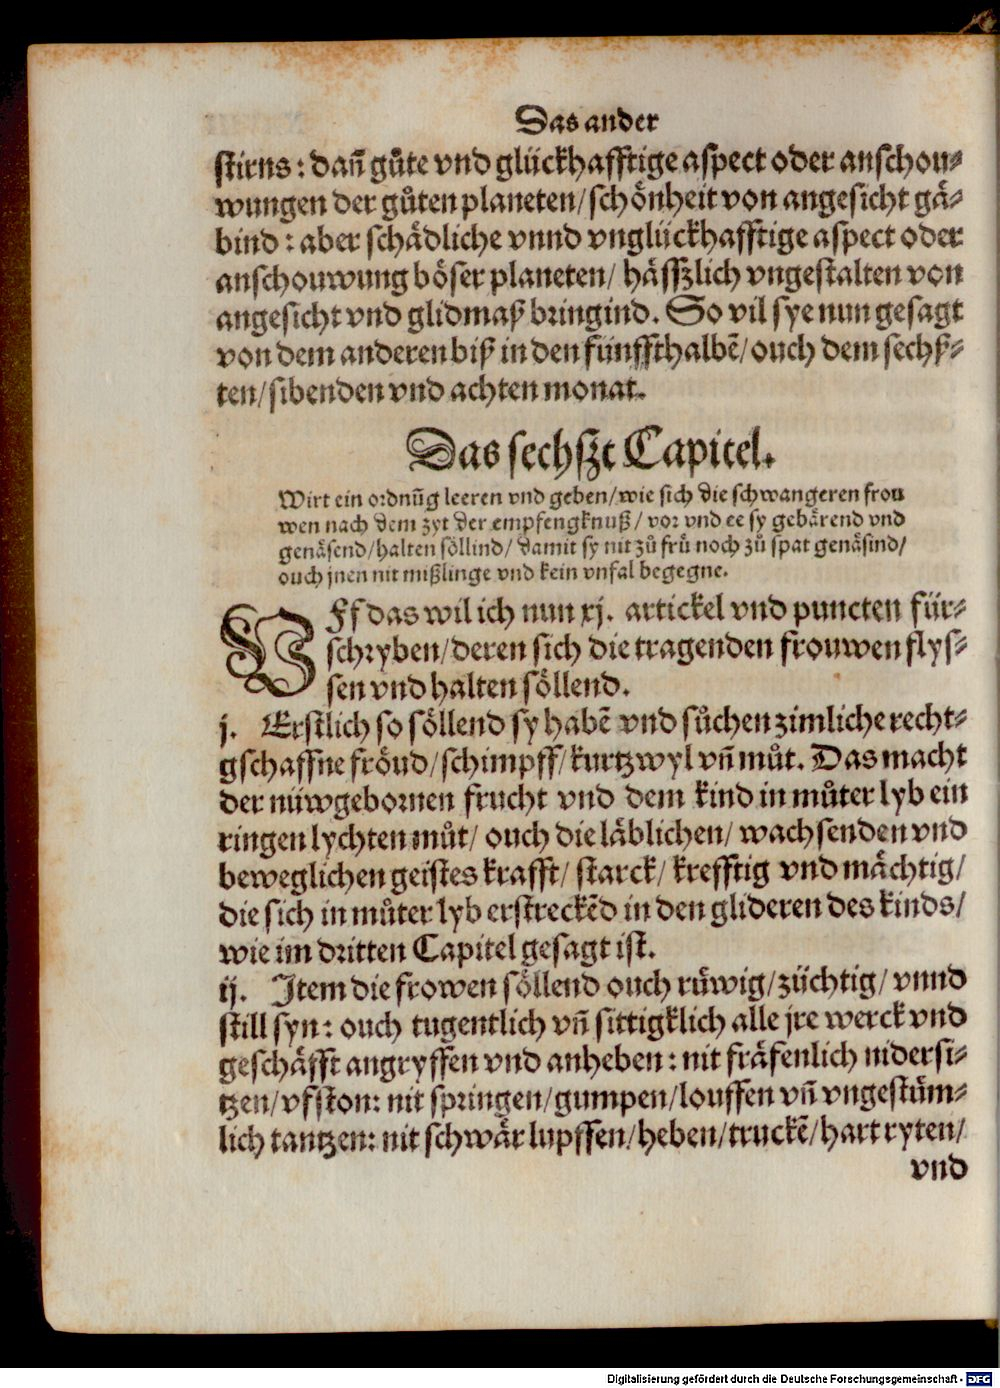 Das ander
stirns: dañ gůte vnd glückhafftige aspect oder anschou⸗
wungen der gůten planeten/ schönheit von angesicht gä⸗
bind: aber schädliche vnnd vnglückhafftige aspect oder
anschouwung böser planeten/ hässzlich vngestalten von
angesicht vnd glidmaß bringind. So vil sye nun gesagt
von dem anderen biß in den fünffthalbẽ/ ouch dem sechß⸗
ten/ sibenden vnd achten monat.
Das sechszt Capitel.
Wirt ein ordnũg leeren vnd geben/ wie sich die schwangeren frou
wen nach dem zyt der empfengknuß/ vor vnd ee sy gebärend vnd
genäsend/ halten söllind/ damit sy nit zů frů noch zů spat genäsind/
ouch jnen nit mißlinge vnd kein vnfal begegne.
VFf das wil ich nun xj. artickel vnd puncten für⸗
schryben/ deren sich die tragenden frouwen flys⸗
sen vnd halten söllend.
j. Erstlich so söllend sy habẽ vnd sůchen zimliche recht⸗
gschaffne fröud/ schimpff/ kurtzwyl vñ můt. Das macht
der nüwgebornen frucht vnd dem kind in můter lyb ein
ringen lychten můt/ ouch die läblichen/ wachsenden vnd
beweglichen geistes krafft/ starck/ krefftig vnd mächtig/
die sich in můter lyb erstreckẽd in den glideren des kinds/
wie im dritten Capitel gesagt ist.
ij. Item die frowen söllend ouch růwig/ züchtig/ vnnd
still syn: ouch tugentlich vñ sittigklich alle jre werck vnd
geschäfft angryffen vnd anheben: nit fräfenlich nidersi⸗
tzen/ vfston: nit springen/ gumpen/ louffen vñ vngestüm⸗
lich tantzen: nit schwär lupffen/ heben/ truckẽ/ hart ryten/
vnd
Digitalisierung gefördert durch die Deutsche Forschungsgemeinschaft - DFG